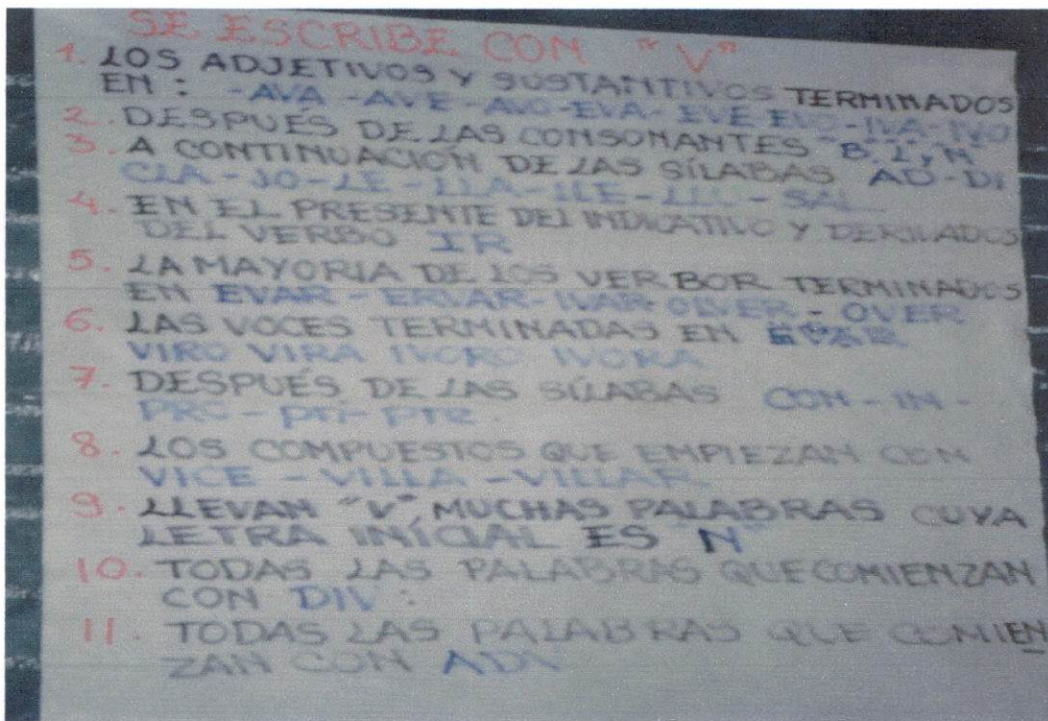 SE ESCRIBE CON "V"
1. LOS ADJETIVOS Y SUSTANTIVOS TERMINADOS
EN : -AVA -AVE -AVO-EVA-EVE EVO-IVA-IVO
2. DESPUÉS DE LAS CONSONANTES B, L, N
3. A CONTINUACIÓN DE LAS SÍLABAS AD-DI
CLA-JO-LE-LLA-LLE-LLU-SAL
4. EN EL PRESENTE DEL INDICATIVO Y DERIVADOS
DEL VERBO IR
5. LA MAYORIA DE LOS VERBOR TERMINADOS
EN EVAR - ERVAR-IVAR OLVER - OVER
6. LAS VOCES TERMINADAS EN
VIRO VIRA IVORO IVORA
7. DESPUÉS DE LAS SÍLABAS CON - IN -
8. LOS COMPUESTOS QUE EMPIEZAN CON
VICE - VILLA - VILLAR
9. LLEVAN "V" MUCHAS PALABRAS CUYA
LETRA INÍCIAL ES N
10. TODAS LAS PALABRAS QUE COMIENZAN
CON DIV :
11. TODAS LAS PALABRAS QUE COMIEN
ZAN CON ADV